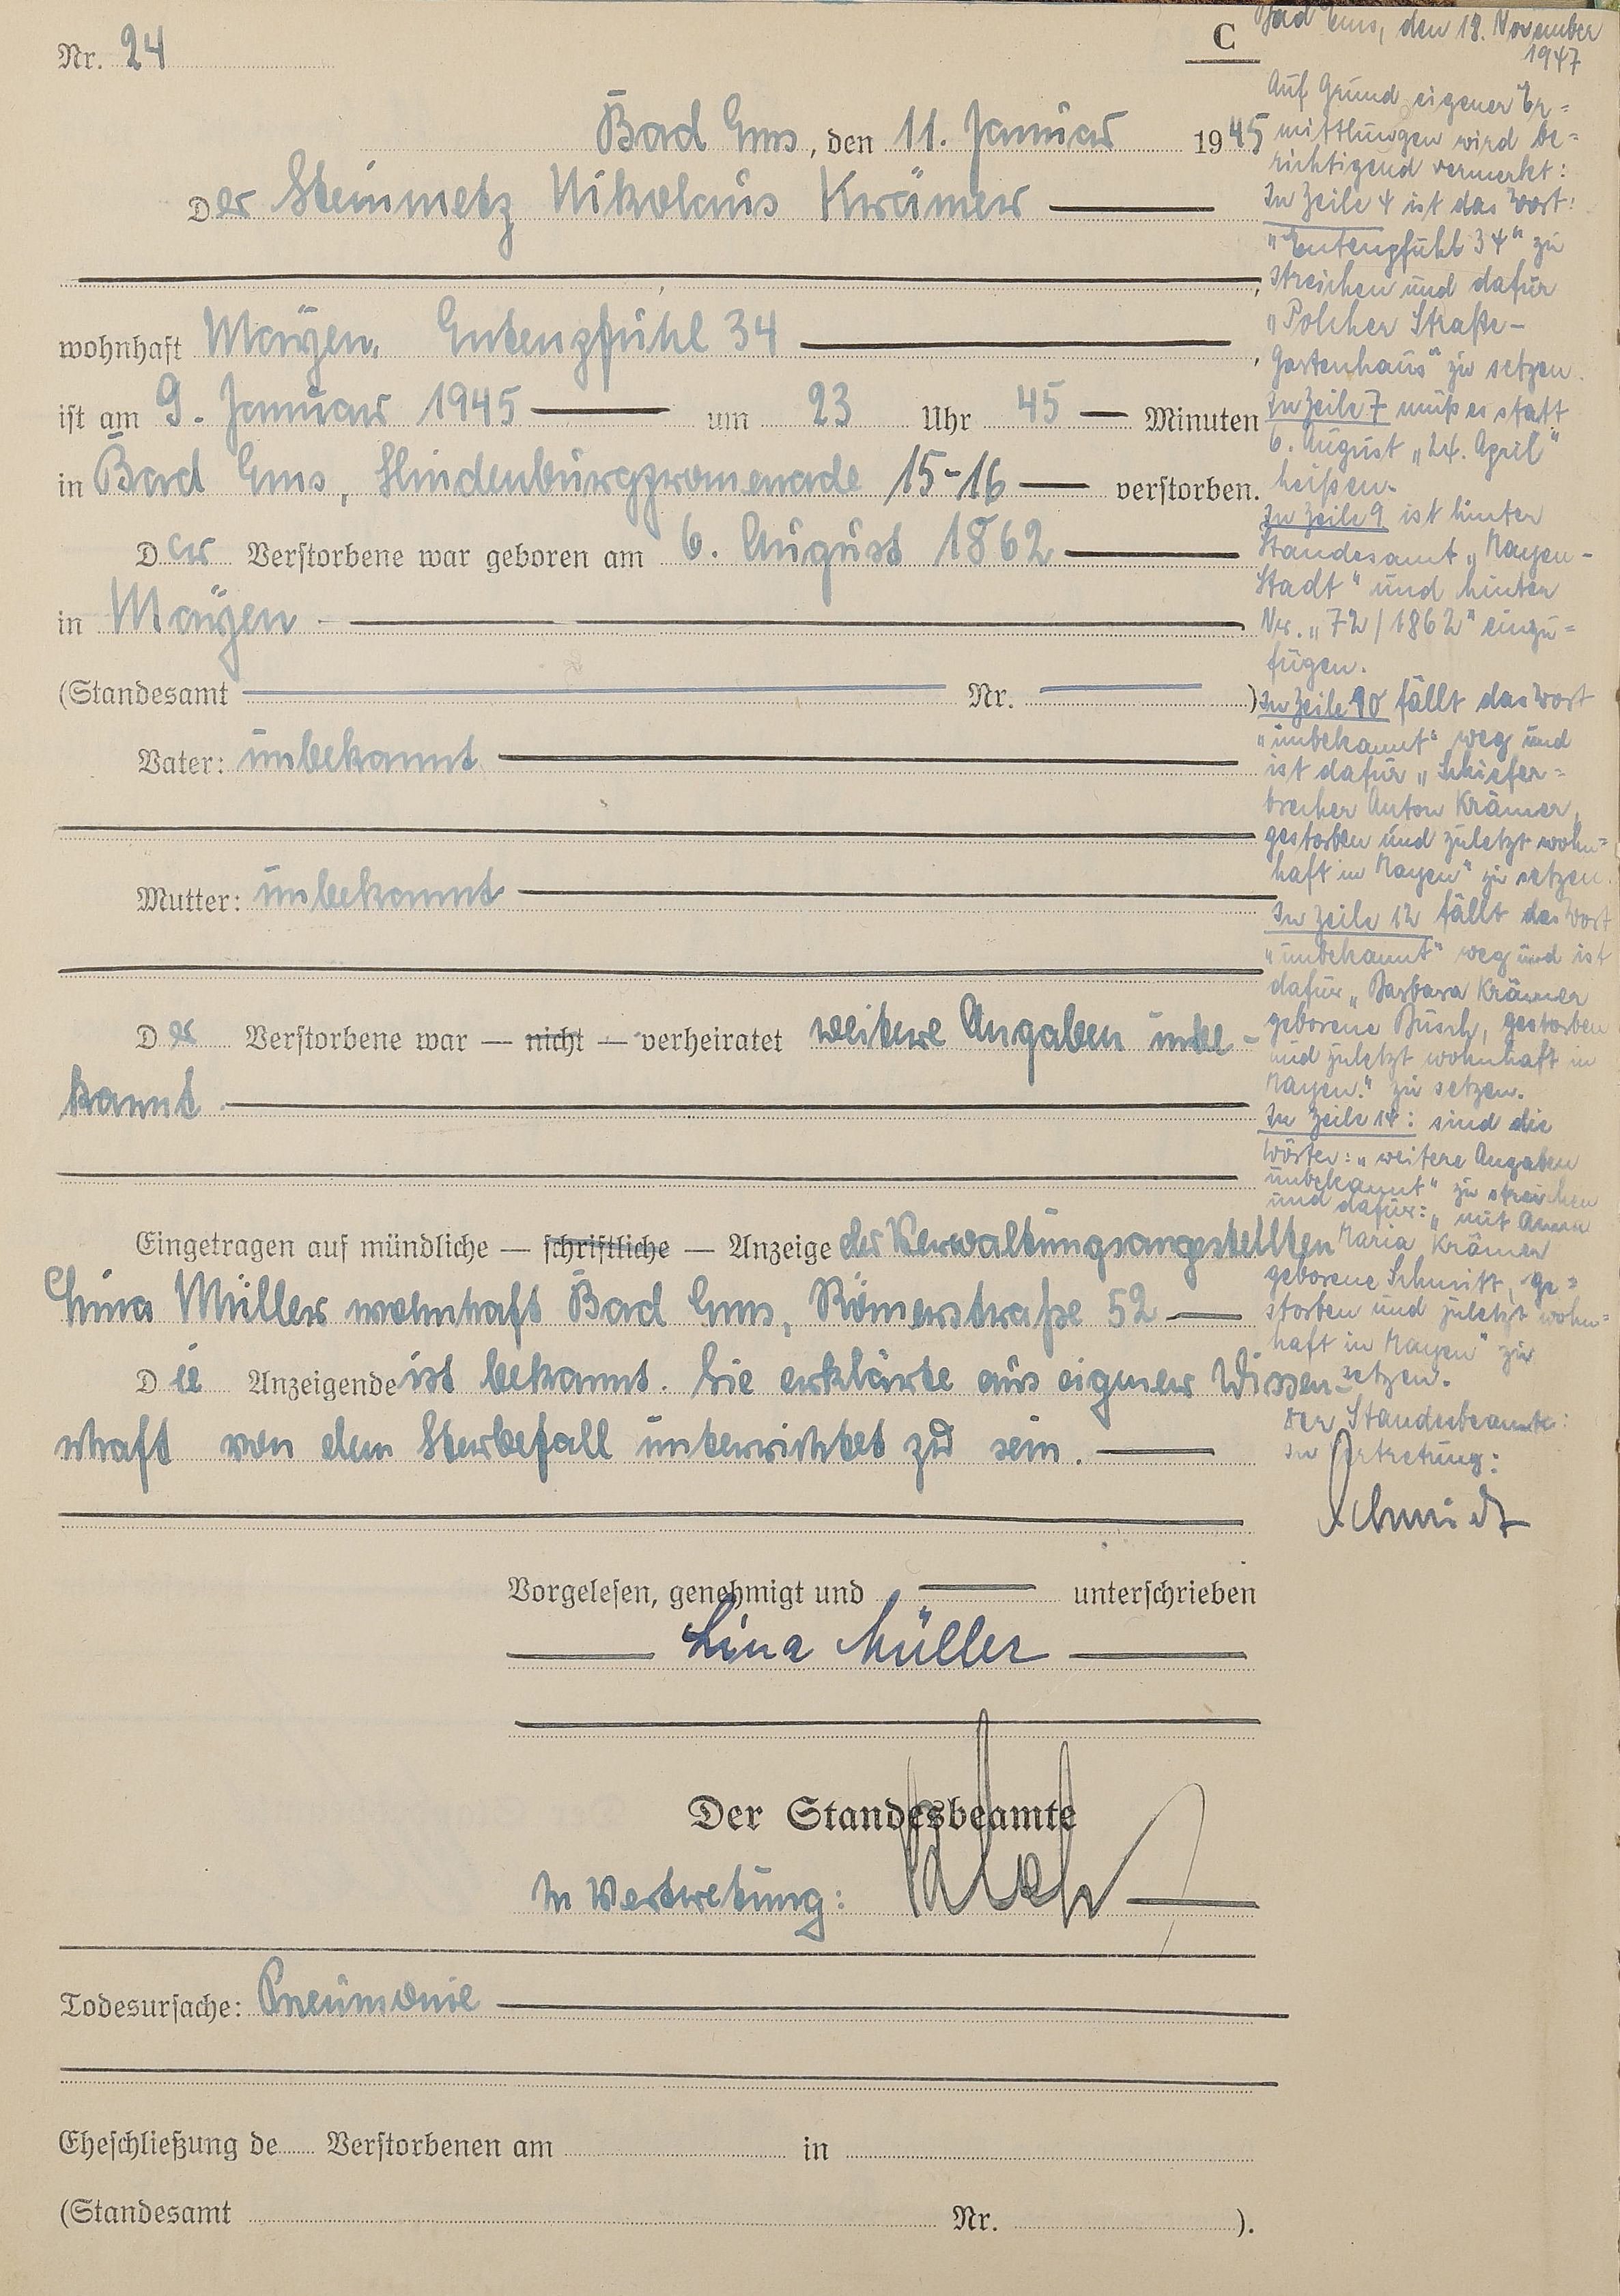 Nr. 24
C
Bad Ems, den 11. Januar 1945
Der Steinmetz Nikolaus Krämer
wohnhaft Mayen, Entenpfuhl 34
ist am 9. Januar 1945 um 23 Uhr 45 Minuten
in Bad Ems, Hindenburgpromenade 15-16 verstorben.
Der Verstorbene war geboren am 6. August 1862
in Mayen
(Standesamt Nr. )
Vater: unbekannt
Mutter: unbekannt
Der Verstorbene war — nicht — verheiratet weitere Angaben unbe-
kannt
Eingetragen auf mündliche — schriftliche — Anzeige der Verwaltungsangestellten
Lina Müller wohnhaft Bad Ems, Römerstraße 52
Die Anzeigende ist bekannt. Sie erklärte aus eigner Wissen-
schaft von dem Sterbefall unterrichtet zu sein.
Vorgelesen, genehmigt und unterschrieben
Lina Müller
Der Standesbeamte
In Vertretung:
Todesursache: Pneumonie
Eheschließung de Verstorbenen am in
(Standesamt Nr. ).
Bad Ems, den 18. November
1947
Auf Grund eigener Er=
mittlungen wird be=
richtigend vermerkt:
In Zeile 4 ist das Wort:
"Entenpfuhl 34" zu
streichen und dafür
"Polcher Straße-
Gartenhaus" zu setzen.
In Zeile 7 muß es statt
6. August "24. April"
heißen.
In Zeile 9 ist hinter
Standesamt "Mayen-
Stadt" und hinter
Nr. "72/1862" einzu=
fügen.
In Zeile 10 fällt das Wort
"unbekannt" weg und
ist dafür "Schiefer=
brecher Anton Krämer,
gestorben und zuletzt wohn=
haft in Mayen" zu setzen.
In Zeile 12 fällt das Wort
"unbekannt" weg und ist
dafür "Barbara Krämer
geborene Busch, gestorben
und zuletzt wohnhaft in
Mayen." zu setzen.
In Zeile 14: sind die
Wörter: "weitere Angaben
unbekannt" zu streichen
und dafür: "mit Anna
Maria Krämer
geborene Schmitt, ge=
storben und zuletzt wohn=
haft in Mayen" zu
setzen.
Der Standesbeamte:
In Vertretung:
Schmidt